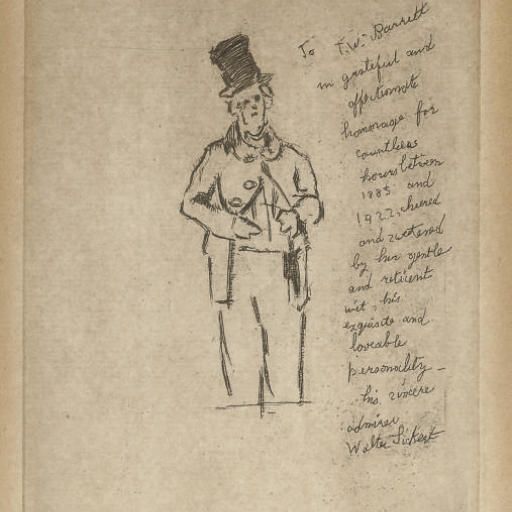 To T. W. Barrett
in grateful and
affectionate
homage for
countless
hours between
1885 and
1922, cheered
and sweetened
by his gentle
and reticent
wit, his
exquisite and
loveable
personality—
his sincere
admirer
Walter Sickert